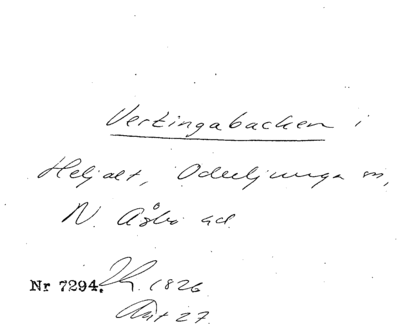 Vertingabacken i
Heljalt, Oderljunga sn,
N. Åsbo hd.
Nr 7294. 1826
27